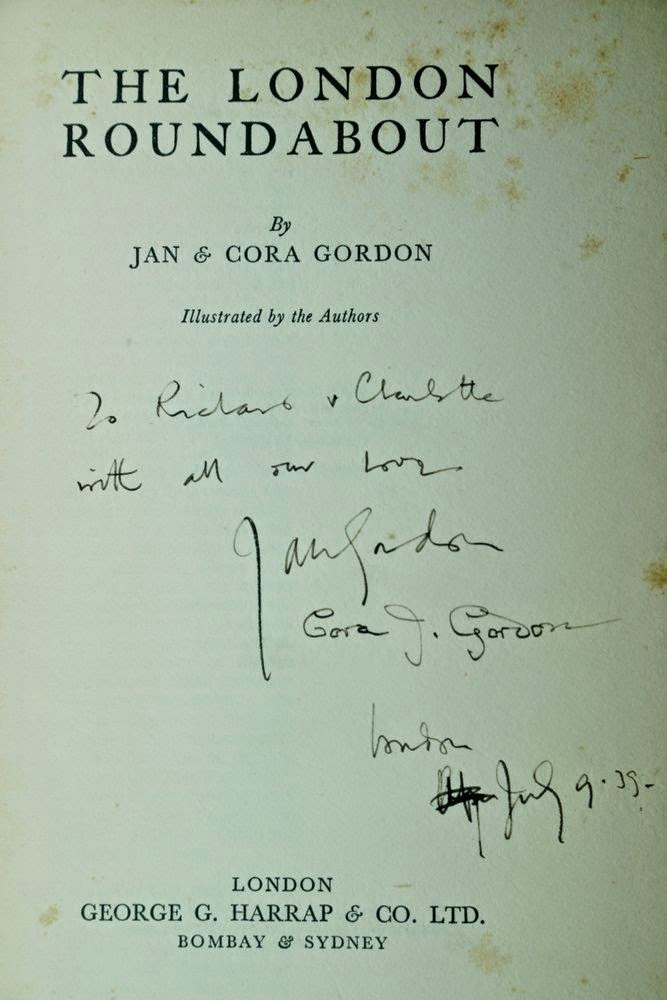 THE LONDON
ROUNDABOUT
By
JAN & CORA GORDON
Illustrated by the Authors
To Richard & Charlotte
with all our love
Jan Gordon
Cora J. Gordon
London
July 9.39-
LONDON
GEORGE G. HARRAP & CO. LTD.
BOMBAY & SYDNEY